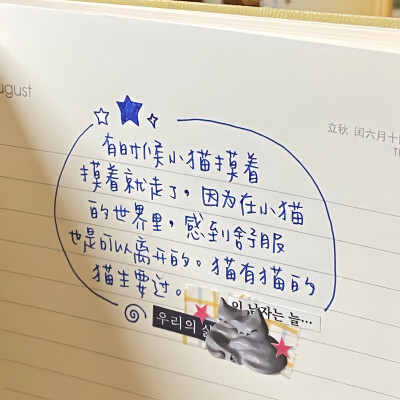 ugust
立秋 闰六月十
有时候小猫摸着
摸着就走了，因为在小猫
的世界里，感到舒服
也是可以离开的。猫有猫的
猫生要过。
자는 늘...
우리의